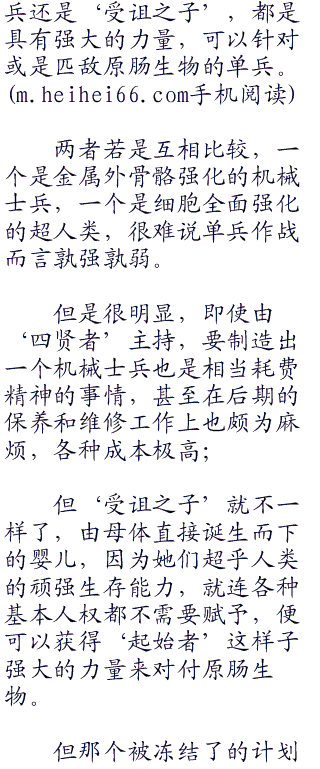 兵还是‘受诅之子’，都是
具有强大的力量，可以针对
或是匹敌原肠生物的单兵。
(m.heihei66.com手机阅读)
两者若是互相比较，一
个是金属外骨骼强化的机械
士兵，一个是细胞全面强化
的超人类，很难说单兵作战
而言孰强孰弱。
但是很明显，即使由
‘四贤者’主持，要制造出
一个机械士兵也是相当耗费
精神的事情，甚至在后期的
保养和维修工作上也颇为麻
烦，各种成本极高；
但‘受诅之子’就不一
样了，由母体直接诞生而下
的婴儿，因为她们超乎人类
的顽强生存能力，就连各种
基本人权都不需要赋予，便
可以获得‘起始者’这样子
强大的力量来对付原肠生
物。
但那个被冻结了的计划